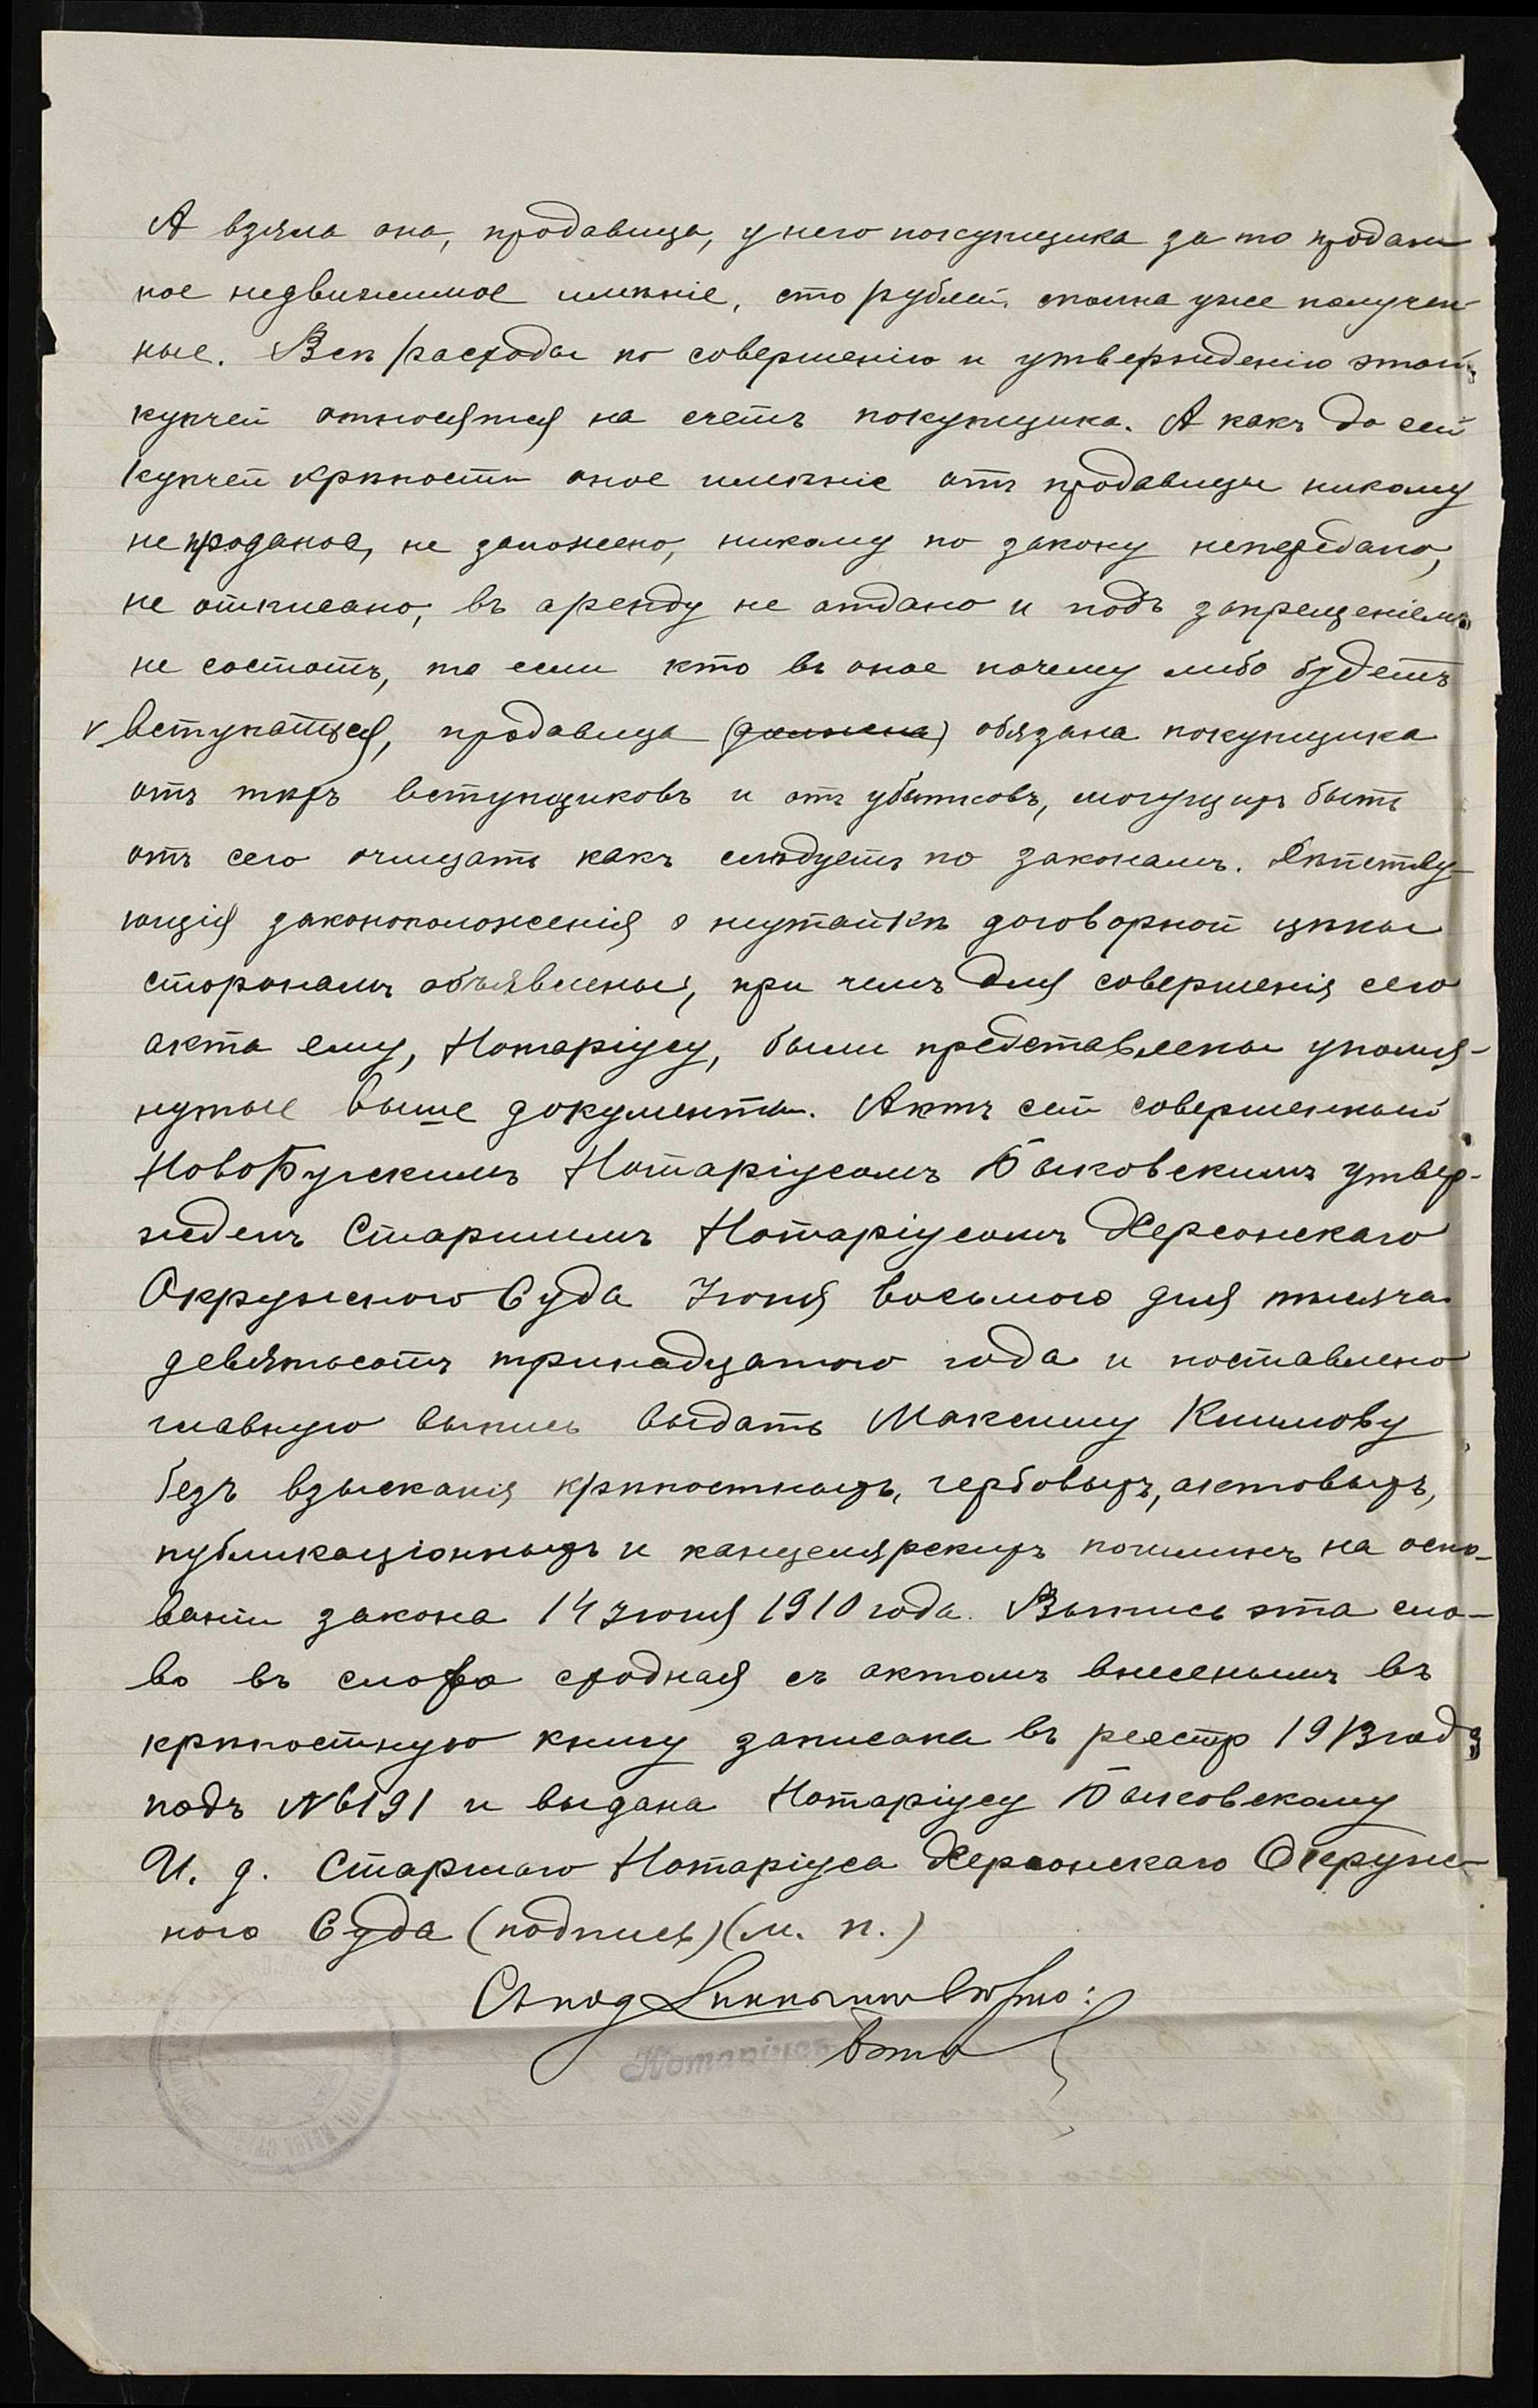 А взяла она, продавица, у него покупщика за то продан
ное недвижимое имѣніе, сто рублей, сполна уже получен-
ные. Всѣ расходы по совершенію и утвержденію этой
купчей относятся на счетъ покупщика. А какъ до сей
купчей крѣпости оное имѣніе отъ продавицы никому
не проданое, не заложено, никому по закону непередано,
не отписано, въ аренду не отдано и подъ запрещеніемъ
не состоитъ, то если кто въ оное почему либо будетъ
v вступаться, продавица (должена) обязана покупщика
отъ тѣхъ вступщиковъ и отъ убытковъ, могущихъ быть
отъ сего очищать какъ слѣдуетъ по законамъ. Дѣйству-
ющія законоположенія о неутайкѣ договорной цѣны
сторонамъ объявлены, при чемъ для совершенія сего
акта ему, Нотаріусу, были представлены упомя-
нутые выше документы. Актъ сей совершенный
НовоБугскимъ Нотаріусомъ Быковскимъ утвер-
жденъ Старшимъ Нотаріусомъ Херсонскаго
Окружного Суда Іюня восьмого дня тысяча
девятьсотъ тринадцатого года и поставлено
главную выпись выдать Максиму Климову
безъ взысканія крѣпостныхъ, гербовыхъ, актовыхъ,
публикаціонныхъ и канцелярскихъ пошлинъ на осно-
ваніи закона 14 Іюня 1910 года. Выпись эта сло-
во въ слово сходная съ актомъ внесенымъ въ
крѣпостную книгу записана въ реестр 1913 года
подъ № 6191 и выдана Нотаріусу Быковскому
И. д. Старшаго Нотаріуса Херсонскаго Окруж-
ного Суда (подпись) (м. п.)
Съ под
Нотаріусъ